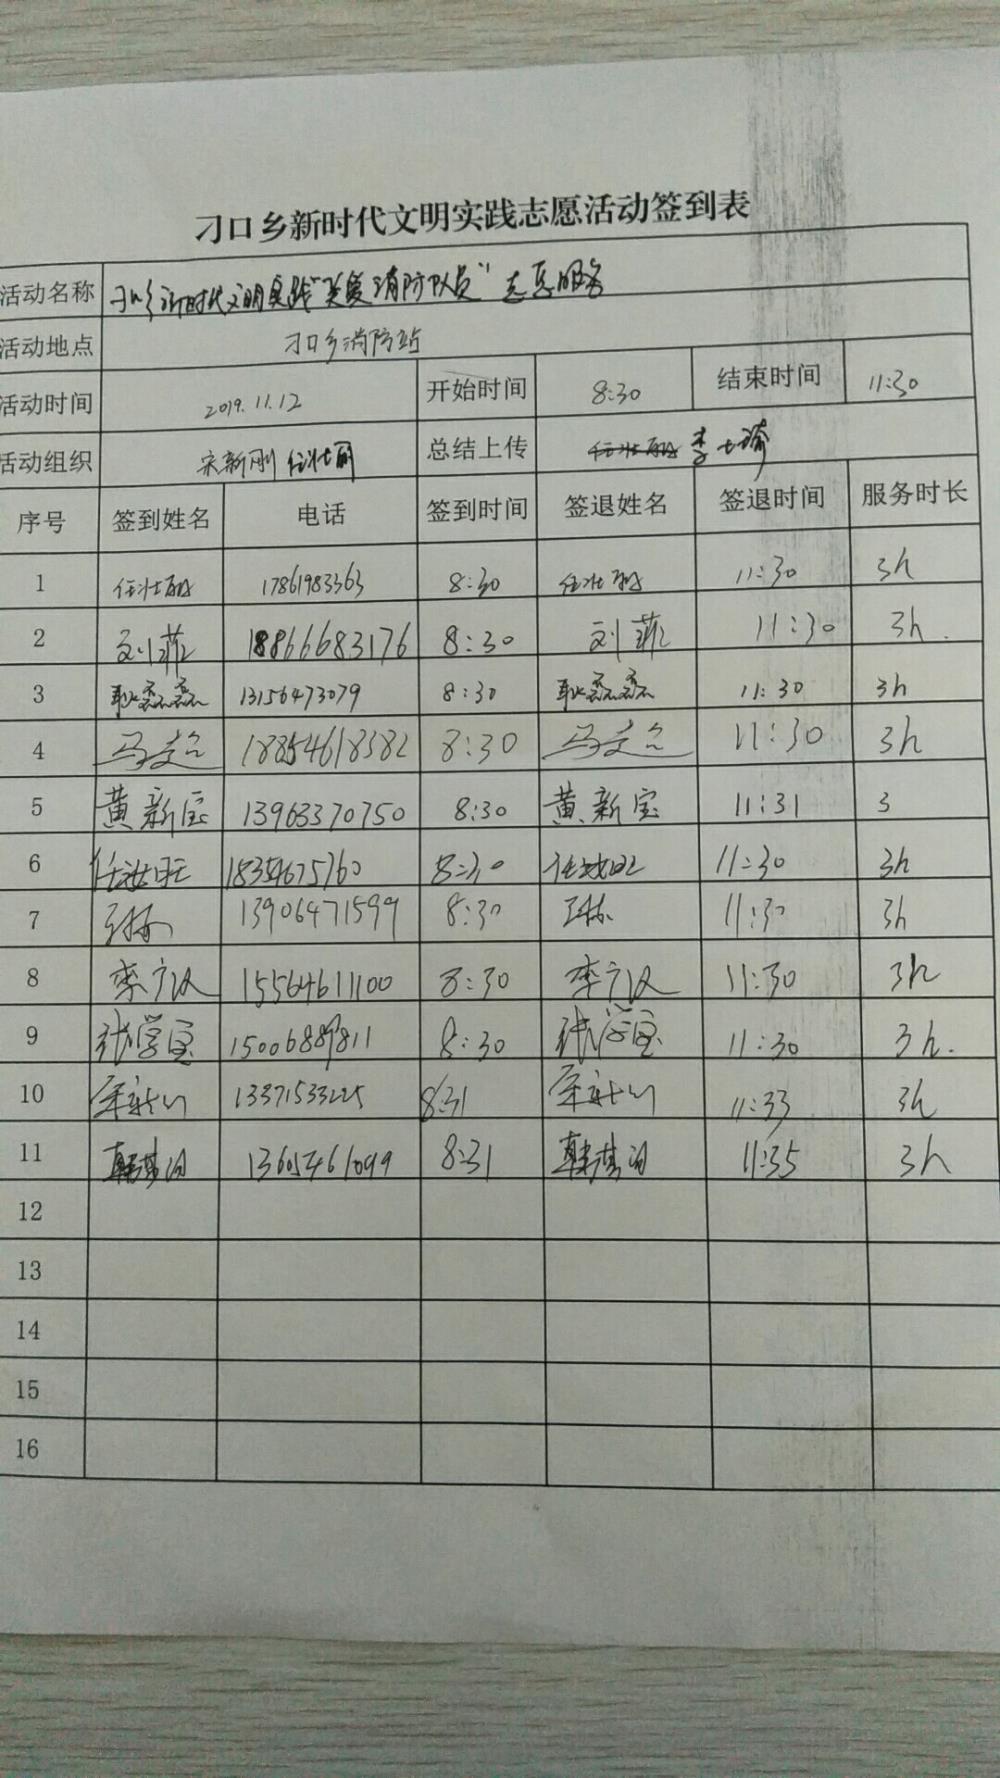 刁口乡新时代文明实践志愿活动签到表
活动名称 刁口乡新时代文明实践"关爱消防队员"志愿服务
活动地点 刁口乡消防站
活动时间 2019.11.12 开始时间 8:30 结束时间 11:30
活动组织 宋新刚 任壮丽 总结上传 李士瑜
序号 签到姓名 电话 签到时间 签退姓名 签退时间 服务时长
1 17861983363 8:30 11:30 3h
2 刘菲 18866683176 8:30 刘菲 11:30 3h.
3 耿磊磊 13156473079 8:30 耿磊磊 11:30 3h
4 18854618382 8:30 11:30 3h
5 黄新宝 13963370750 8:30 黄新宝 11:31 3
6 18354675760 8:30 11:30 3h
7 13906471599 8:30 11:30 3h
8 李广汉 15564611100 8:30 李广汉 11:30 3h
9 张学宝 15006889811 8:30 张学宝 11:30 3h.
10 13371533225 8:31 11:33 3h
11 13605461099 8:31 11:35 3h
12
13
14
15
16